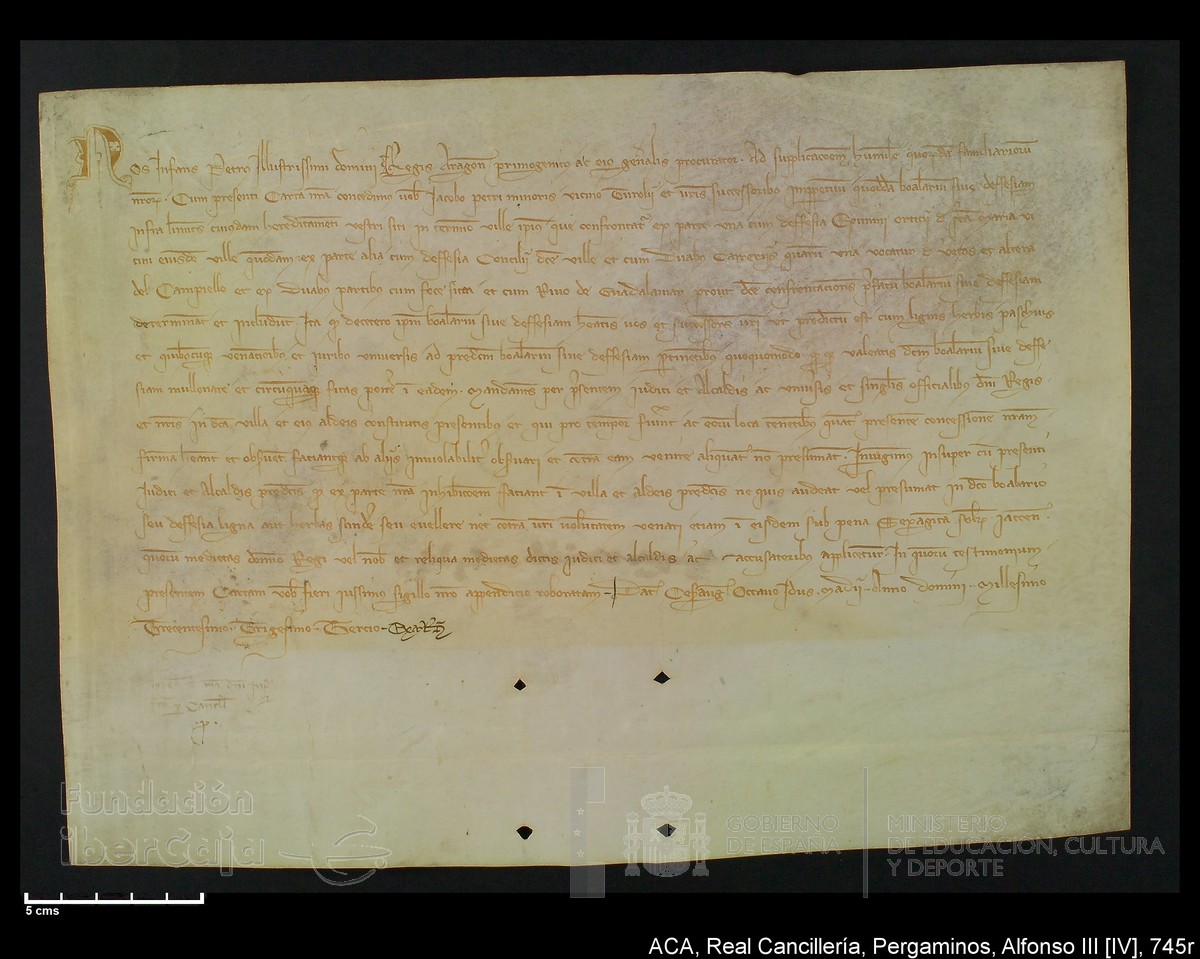 Nos Infans Petrus Illustrissimi domini Regis Aragon primogenitus ac eius generalis procurator. Ad supplicacoem humile quorda familiariorū
nror. Cum presenti Carta nra concedimus vob Iacobo petri minoris vicino Turolij et vris successoribus imppetuū quodda boalarū sive deffesiam
infra limites cuiusdam hereditamēti vestri siti in termino ville ipius que confrontat ex parte una cum deffesia Eximini orticij d sca Maria vi
cini eiusde ville quodam ex parte alia cum deffesia Concilij dce ville et cum duabus Carrerijs quarū una vocatur d vetos et altera
del Campiello et ex duabus partibus cum foce sicca et cum Rivo de Guadalaviar prout dce confrontaciones pfatū boalarū sive deffesiam
determinat et includūt. Ita q decetero ipm boalarū sive deffesiam heatis vos et successores vri ut predictū est cum lignis herbis paschuis
et quibuscuq venacionibus et iuribus universis ad predcm boalarū sive deffesiam ptinetibus quoquomodo valeatis dcm boalarū sive deffe
siam et in eadem. Mandantes per psentem iudici et Alcaldis ac universis et singlis officialibus dni Regis
et nris in dca villa et eius aldeis constitutis presentibus et qui pro tempore fuerint ac eorū loca tenetibus quat presente concessione nram
firma heant et observēt faciantq ab alijs inviolabilit observari et cotra eam venire aliquat no presumat. Iniungimus insuper cū presenti
Iudici et Alcaldis predcis q ex parte nra inhibicoem faciant ī villa et aldeis predcis ne quis audeat vel presumat in dco boalario
seu deffesia ligna aut herbas scindere seu evellere nec cotra vri volutatem venari etiam ī eisdem sub pena Sexaginta solidor Iaccen.
quorū medietas domino Regi vel nob et reliqua medietas dictis iudici et alcaldis ac accusatoribus applicetur. In quorū testimonium
presentem Cartam vob fieri iussimus sigillo nro appendicio roboratam. Dat Cesaraug Octavo Idus Madij. Anno domini. Millesimo
Trecentesimo. Trigesimo. Tercio
Fundación
iberCaja
GOBIERNO
DE ESPAÑA
MINISTERIO
DE EDUCACIÓN, CULTURA
Y DEPORTE
5 cms
ACA, Real Cancillería, Pergaminos, Alfonso III [IV], 745r